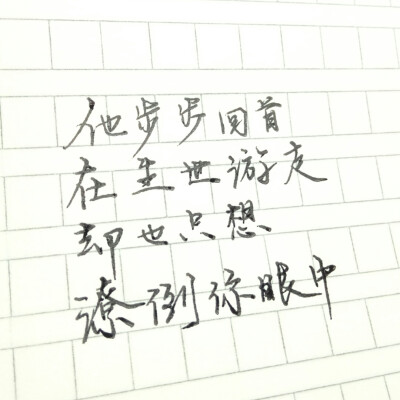 他步步回首
在尘世游走
却也只想
潦倒你眼中